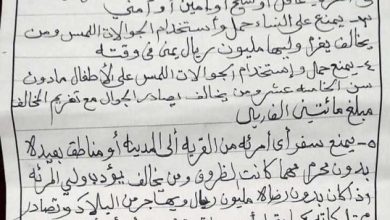 ٣- يمنع على النساء حمل وأستخدام الجوالات اللمس ومن
يخالف يغرم وليها مليون ريال يمني في وقته
٤- يمنع حمل وإستخدام الجوالات اللمس على الأطفال مادون
سن الخامسة عشر ومن يخالف يصادر الجوال مع تغريم المخالف
مبلغ مائتين الف ريال
٥- يمنع سفر أي امرئه من القريه ألى المدينة أو مناطق بعيده
بدون محرم مهما كانت لظروف ومن يخالف يؤدب ولي المرئه
وذا كان بدون رضاه مليون ريال ويهاجر من البلاد وتصادر